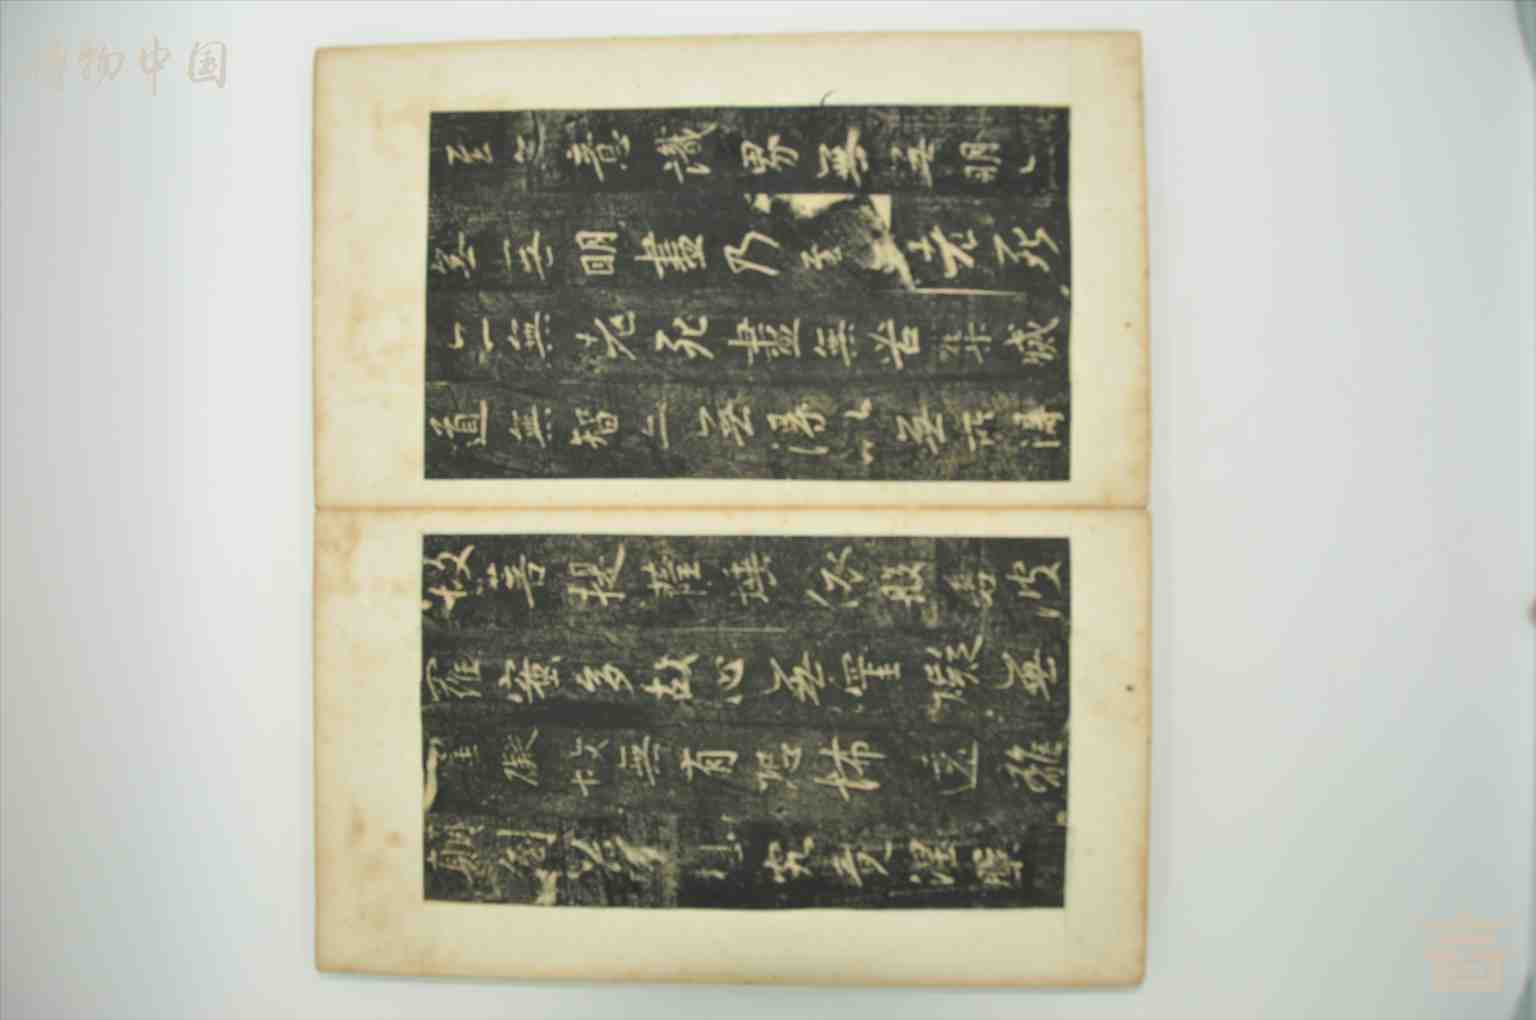 至無意識界無無明亦
無無明盡乃至老死
亦無老死盡無苦集滅
道無智亦無得以無所得
故菩提薩埵依般若波
羅蜜多故心無罣礙無
罣礙故無有恐怖遠離
顛倒夢想究竟涅槃
博物中国